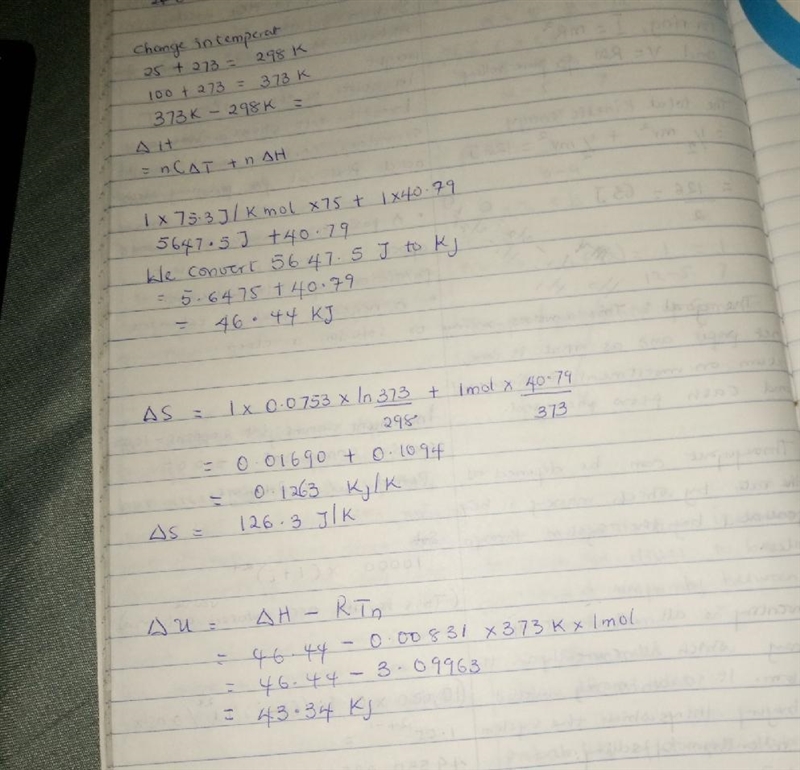 Change in temperat
25 + 273 = 298 K
100 + 273 = 373 K
373K - 298K =
ΔH
= nCΔT + nΔH
1 x 75.3 J/K mol x 75 + 1 x 40.79
5647.5 J + 40.79
We convert 5647.5 J to KJ
= 5.6475 + 40.79
= 46.44 KJ
ΔS = 1 x 0.0753 x ln 373/298 + 1mol x 40.79/373
= 0.01690 + 0.1094
= 0.1263 KJ/K
ΔS = 126.3 J/K
ΔU = ΔH - RTn
= 46.44 - 0.00831 x 373K x 1mol
= 46.44 - 3.09963
= 43.34 KJ